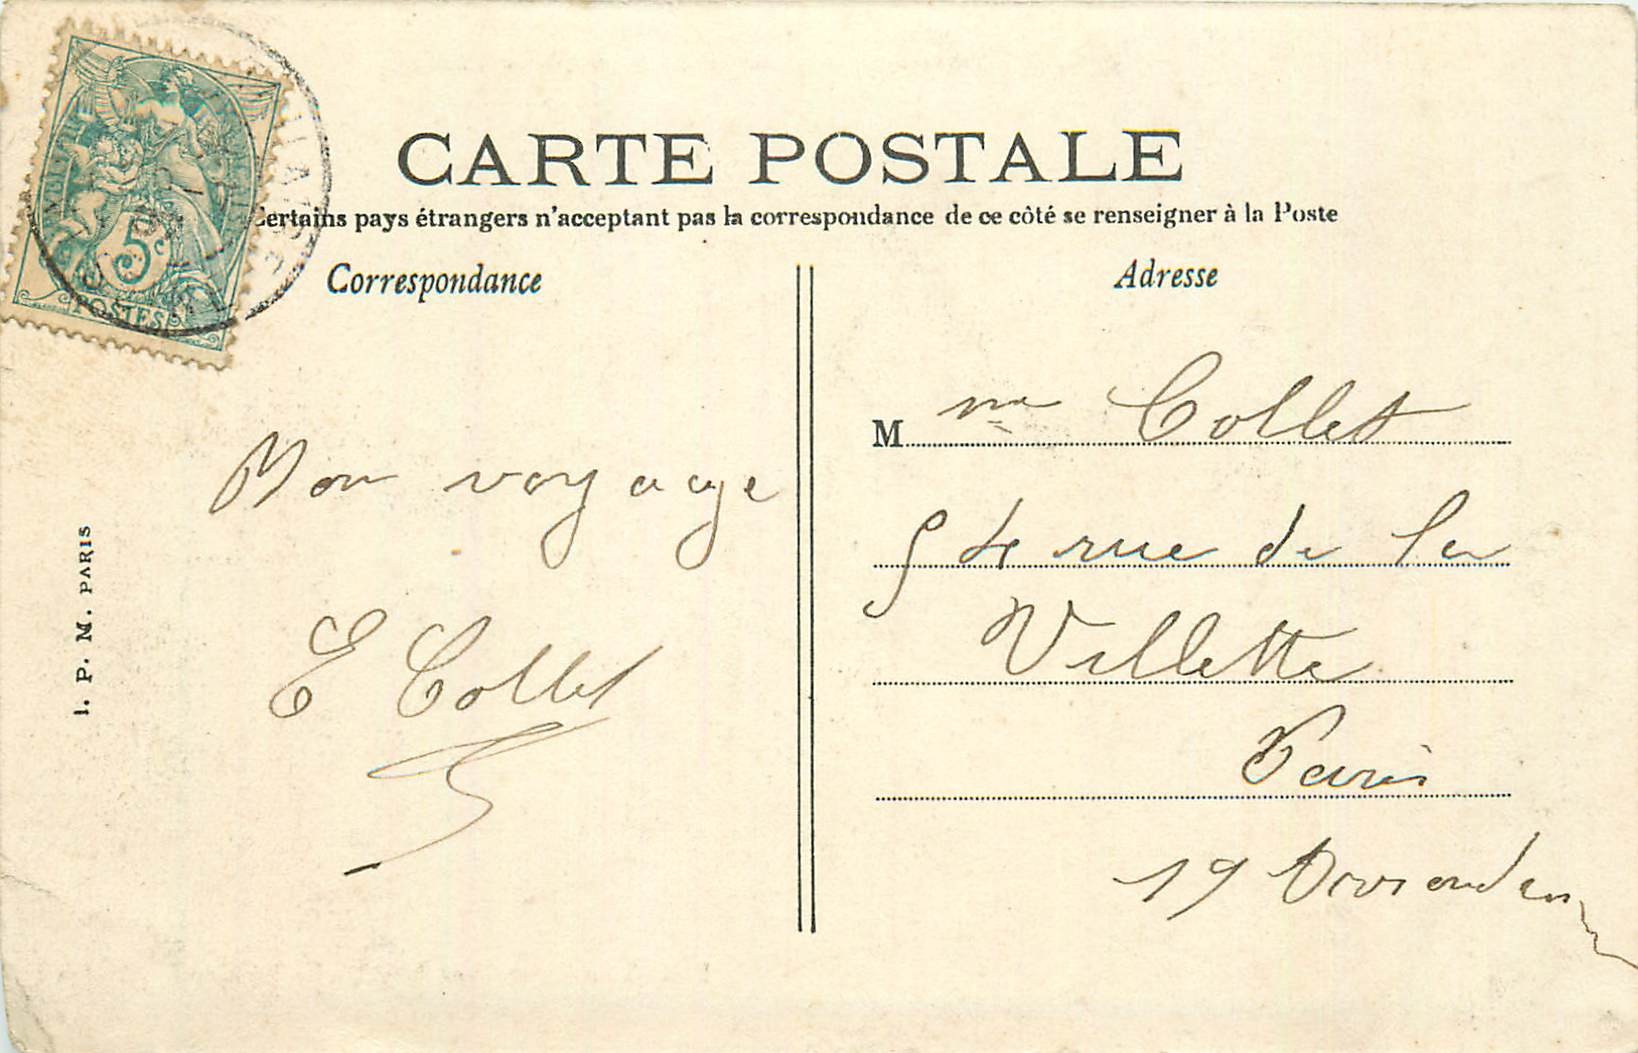 CARTE POSTALE
Certains pays étrangers n'acceptant pas la correspondance de ce côté se renseigner à la Poste
Correspondance
Bon voyage
E Collet
I. P. M. PARIS
5c
POSTES
Adresse
Mme Collet
54 rue de la
Villette
Paris
19 Arrondem